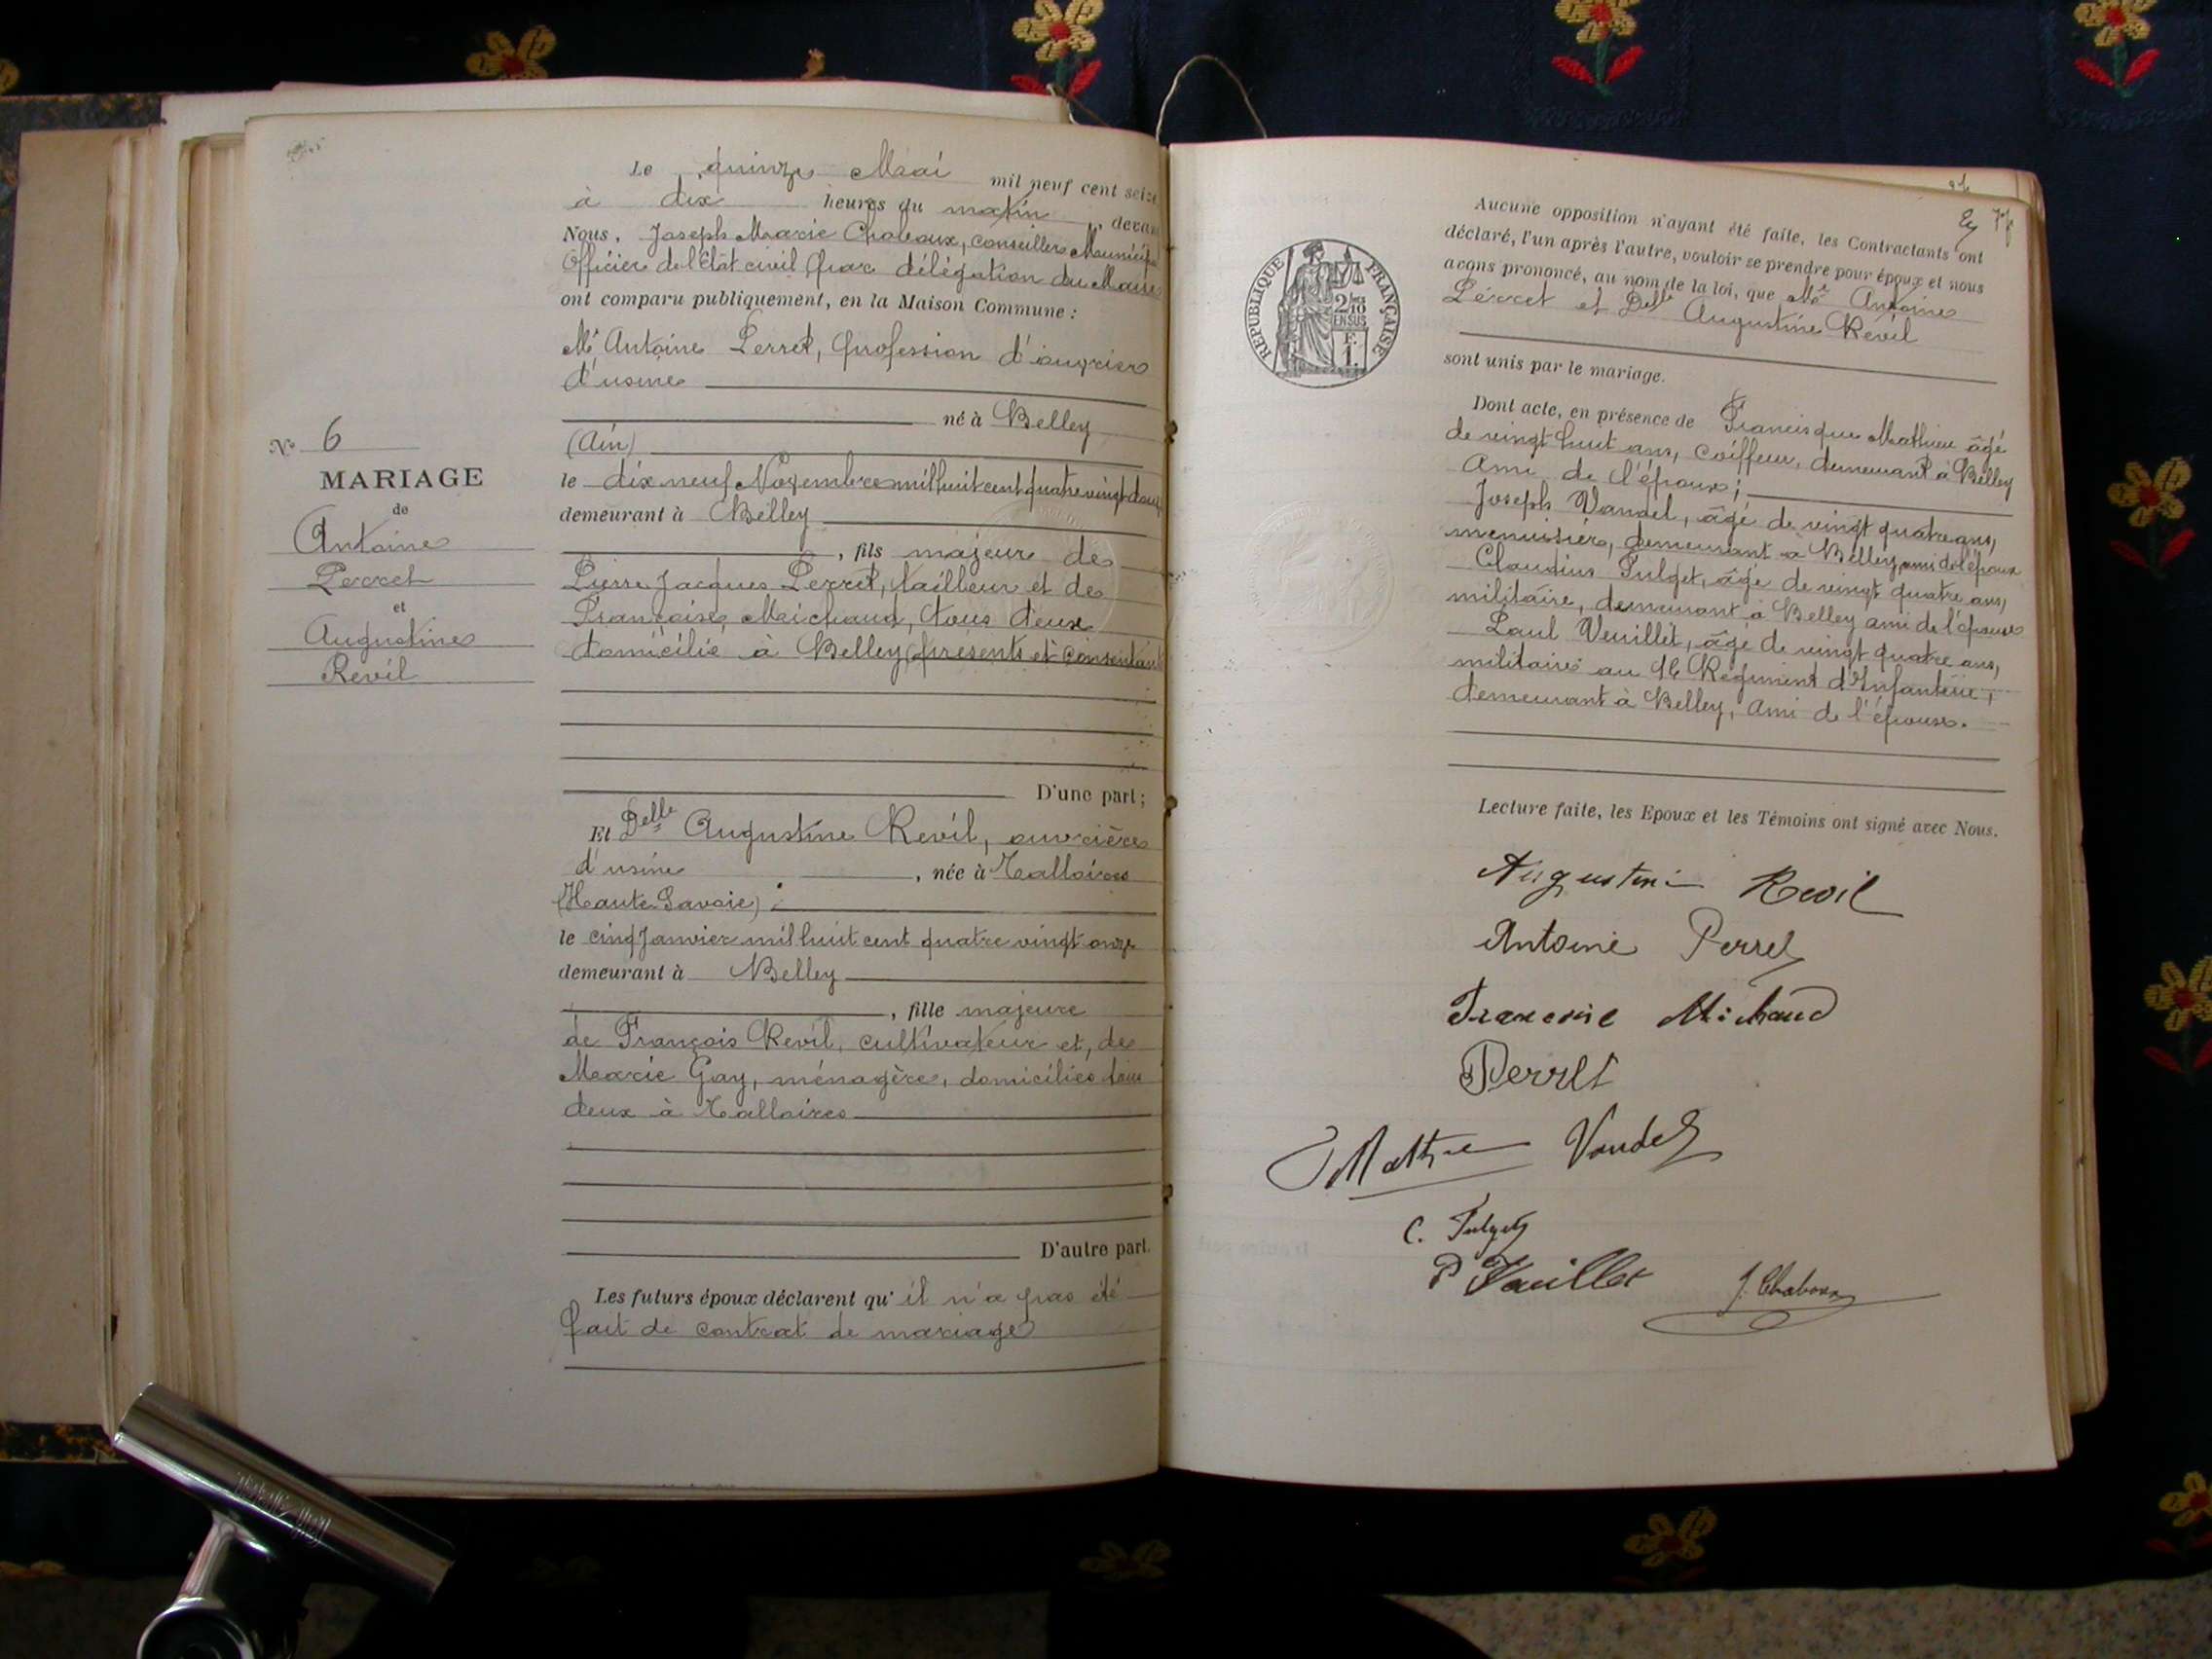 Le quinze Mai mil neuf cent seize
à dix heures du matin, devant
Nous, Joseph Marie Chaboux, conseiller Municipal
Officier de l'État civil par délégation du Maire
ont comparu publiquement, en la Maison Commune :
Mr Antoine Perret, profession d'ouvrier
d'usine
né à Belley
(Ain)
le dix neuf Novembre mil huit cent quatre vingt douze
demeurant à Belley
, fils majeur de
Pierre Jacques Perret, tailleur et de
Françoise Michaud, tous deux
domicilié à Belley, présents et consentants
D'une part ;
No 6
MARIAGE
de
Antoine
Perret
et
Augustine
Revil
Et Delle Augustine Revil, ouvrière
d'usine , née à Talloires
(Haute Savoie) ;
le cinq Janvier mil huit cent quatre vingt onze
demeurant à Belley
, fille majeure
de François Revil, cultivateur et, de
Marie Gay, ménagère, domiciliés tous
deux à Talloires
D'autre part.
Les futurs époux déclarent qu'il n'a pas été
fait de contrat de mariage
77
RÉPUBLIQUE FRANÇAISE
2/10
EN SUS
F.
1.
Aucune opposition n'ayant été faite, les Contractants ont
déclaré, l'un après l'autre, vouloir se prendre pour époux et nous
avons prononcé, au nom de la loi, que Mr Antoine
Perret et Delle Augustine Revil
sont unis par le mariage.
Dont acte, en présence de Francisque Mathieu âgé
de vingt huit ans, coiffeur, demeurant à Belley
Ami de l'époux ;
Joseph Vandel, âgé de vingt quatre ans,
menuisier, demeurant à Belley, ami de l'époux
Claudius Pulget, âgé de vingt quatre ans,
militaire, demeurant à Belley ami de l'épouse
Paul Veuillet, âgé de vingt quatre ans,
militaire au Régiment d'Infanterie,
demeurant à Belley, Ami de l'épouse.
Lecture faite, les Epoux et les Témoins ont signé avec Nous.
Augustine Revil
Antoine Perret
Françoise Michaud
Perret
Vandel
C. Pulget
P Veuillet J. Chaboux